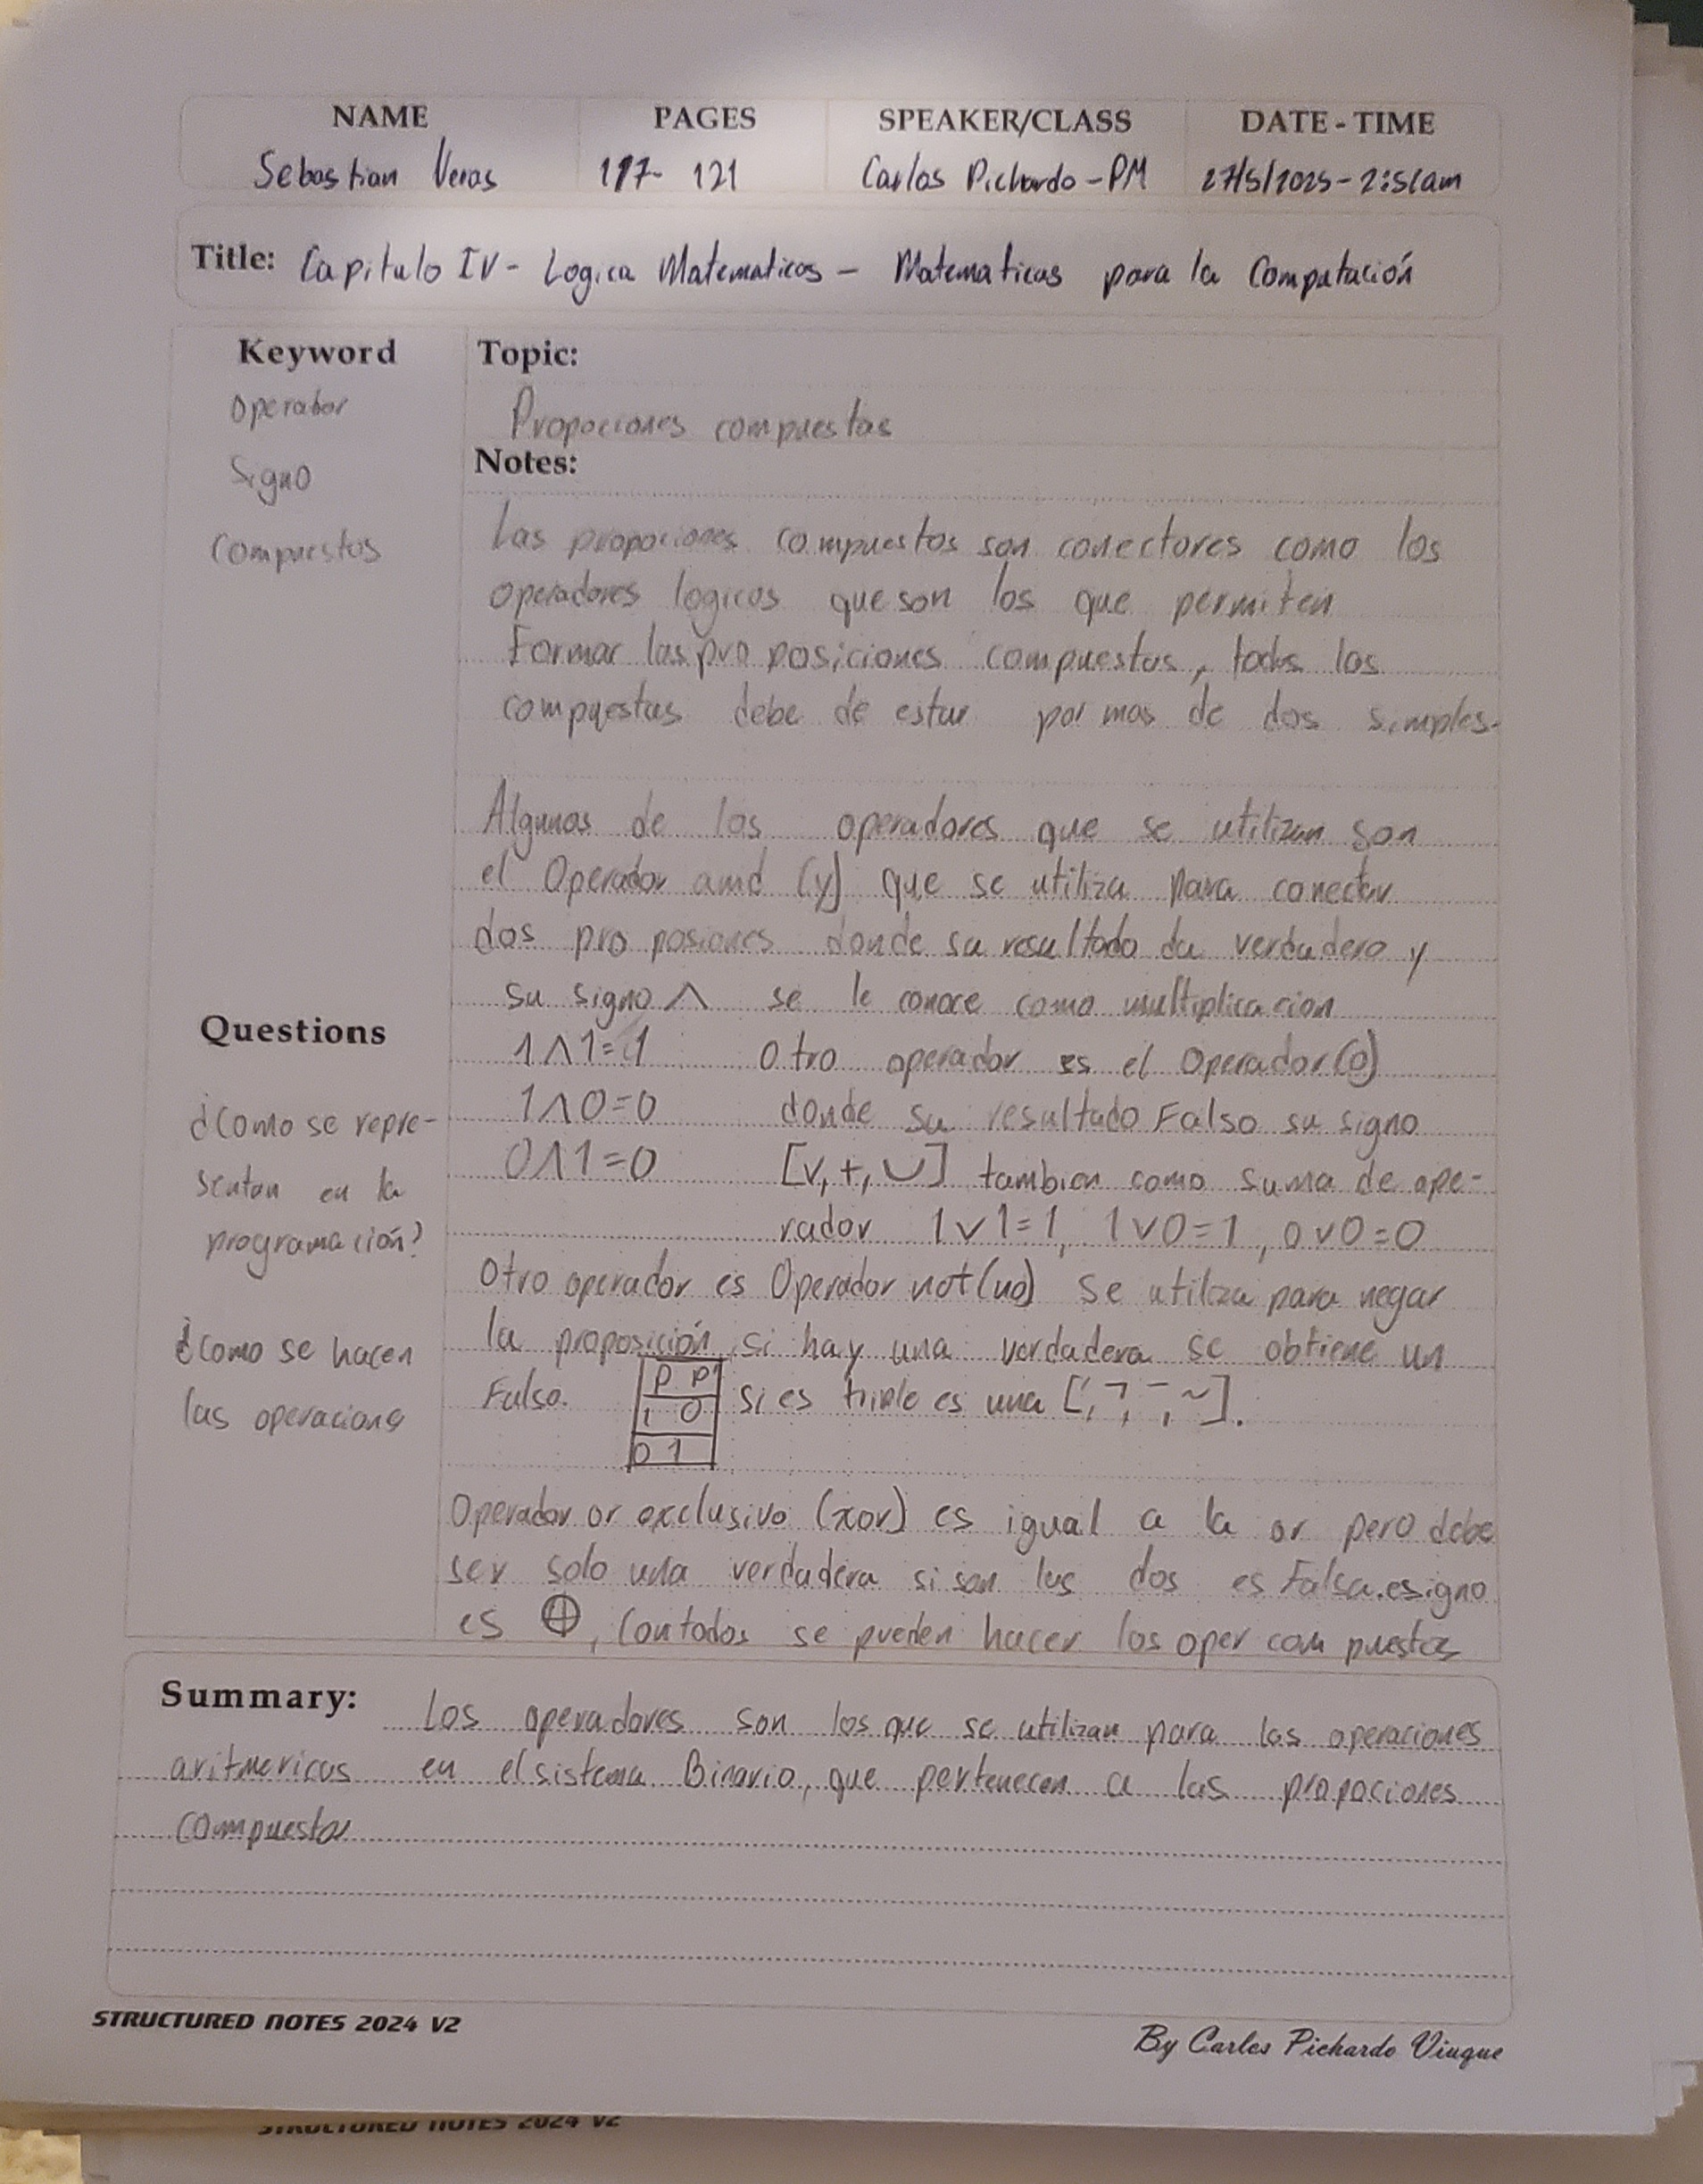 NAME PAGES SPEAKER/CLASS DATE - TIME
Sebastian Veras 117- 121 Carlos Pichardo - PM 27/5/2025 - 2:51am
Title: Capitulo IV - Logica Matematicas - Matematicas para la Computación
Keyword
Operador
Signo
Compuestos
Topic:
Propociones compuestas
Notes:
Las propociones compuestos son conectores como los
operadores logicos que son los que permiten
Formar las pro posiciones compuestas, todas las
compuestas debe de estar por mas de dos simples.
Algunos de los operadores que se utilizan son
el Operador amd (y) que se utiliza para conectar
dos pro posiones donde su resultado da verdadero y
su signo ∧ se le conoce como multiplicacion
1∧1=1 Otro operador es el Operador (o)
1∧0=0 donde su resultado Falso su signo
0∧1=0 [v, +, ∪] tambien como suma de ope-
rador 1v1=1, 1v0=1, 0v0=0
Otro operador es Operador not (no) se utiliza para negar
la proposición, si hay una verdadera se obtiene un
Falso. si es triple es una [', ¬, ‾, ~].
p p'
1 0
0 1
Operador or exclusivo (xor) es igual a la or pero debe
ser solo una verdadera si son las dos es Falsa. esigno
es ⊕, Con todos se pueden hacer los oper com puestos
Questions
¿Como se repre-
sentan en la
programación?
¿Como se hacen
las operacions
Summary: Los operadores son los que se utilizan para las operaciones
aritmericas en el sistema Binario, que pertenecen a las propociones
compuestas
STRUCTURED NOTES 2024 V2
By Carlos Pichardo Viuque
STRUCTURED NOTES 2024 V2